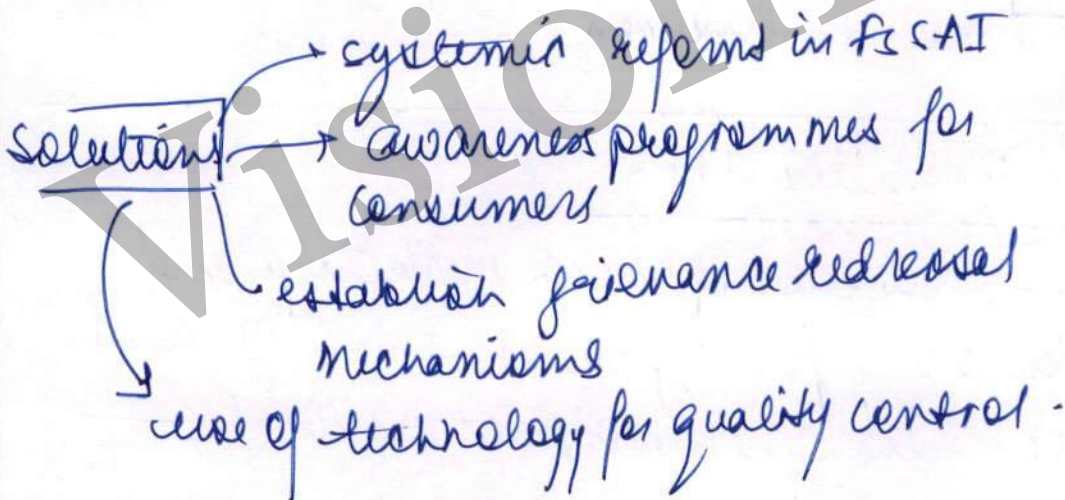 systemic reforms in FSSAI
Solutions
awareness programmes for
consumers
establish grievance redressal
mechanisms
use of technology for quality control.
Vision